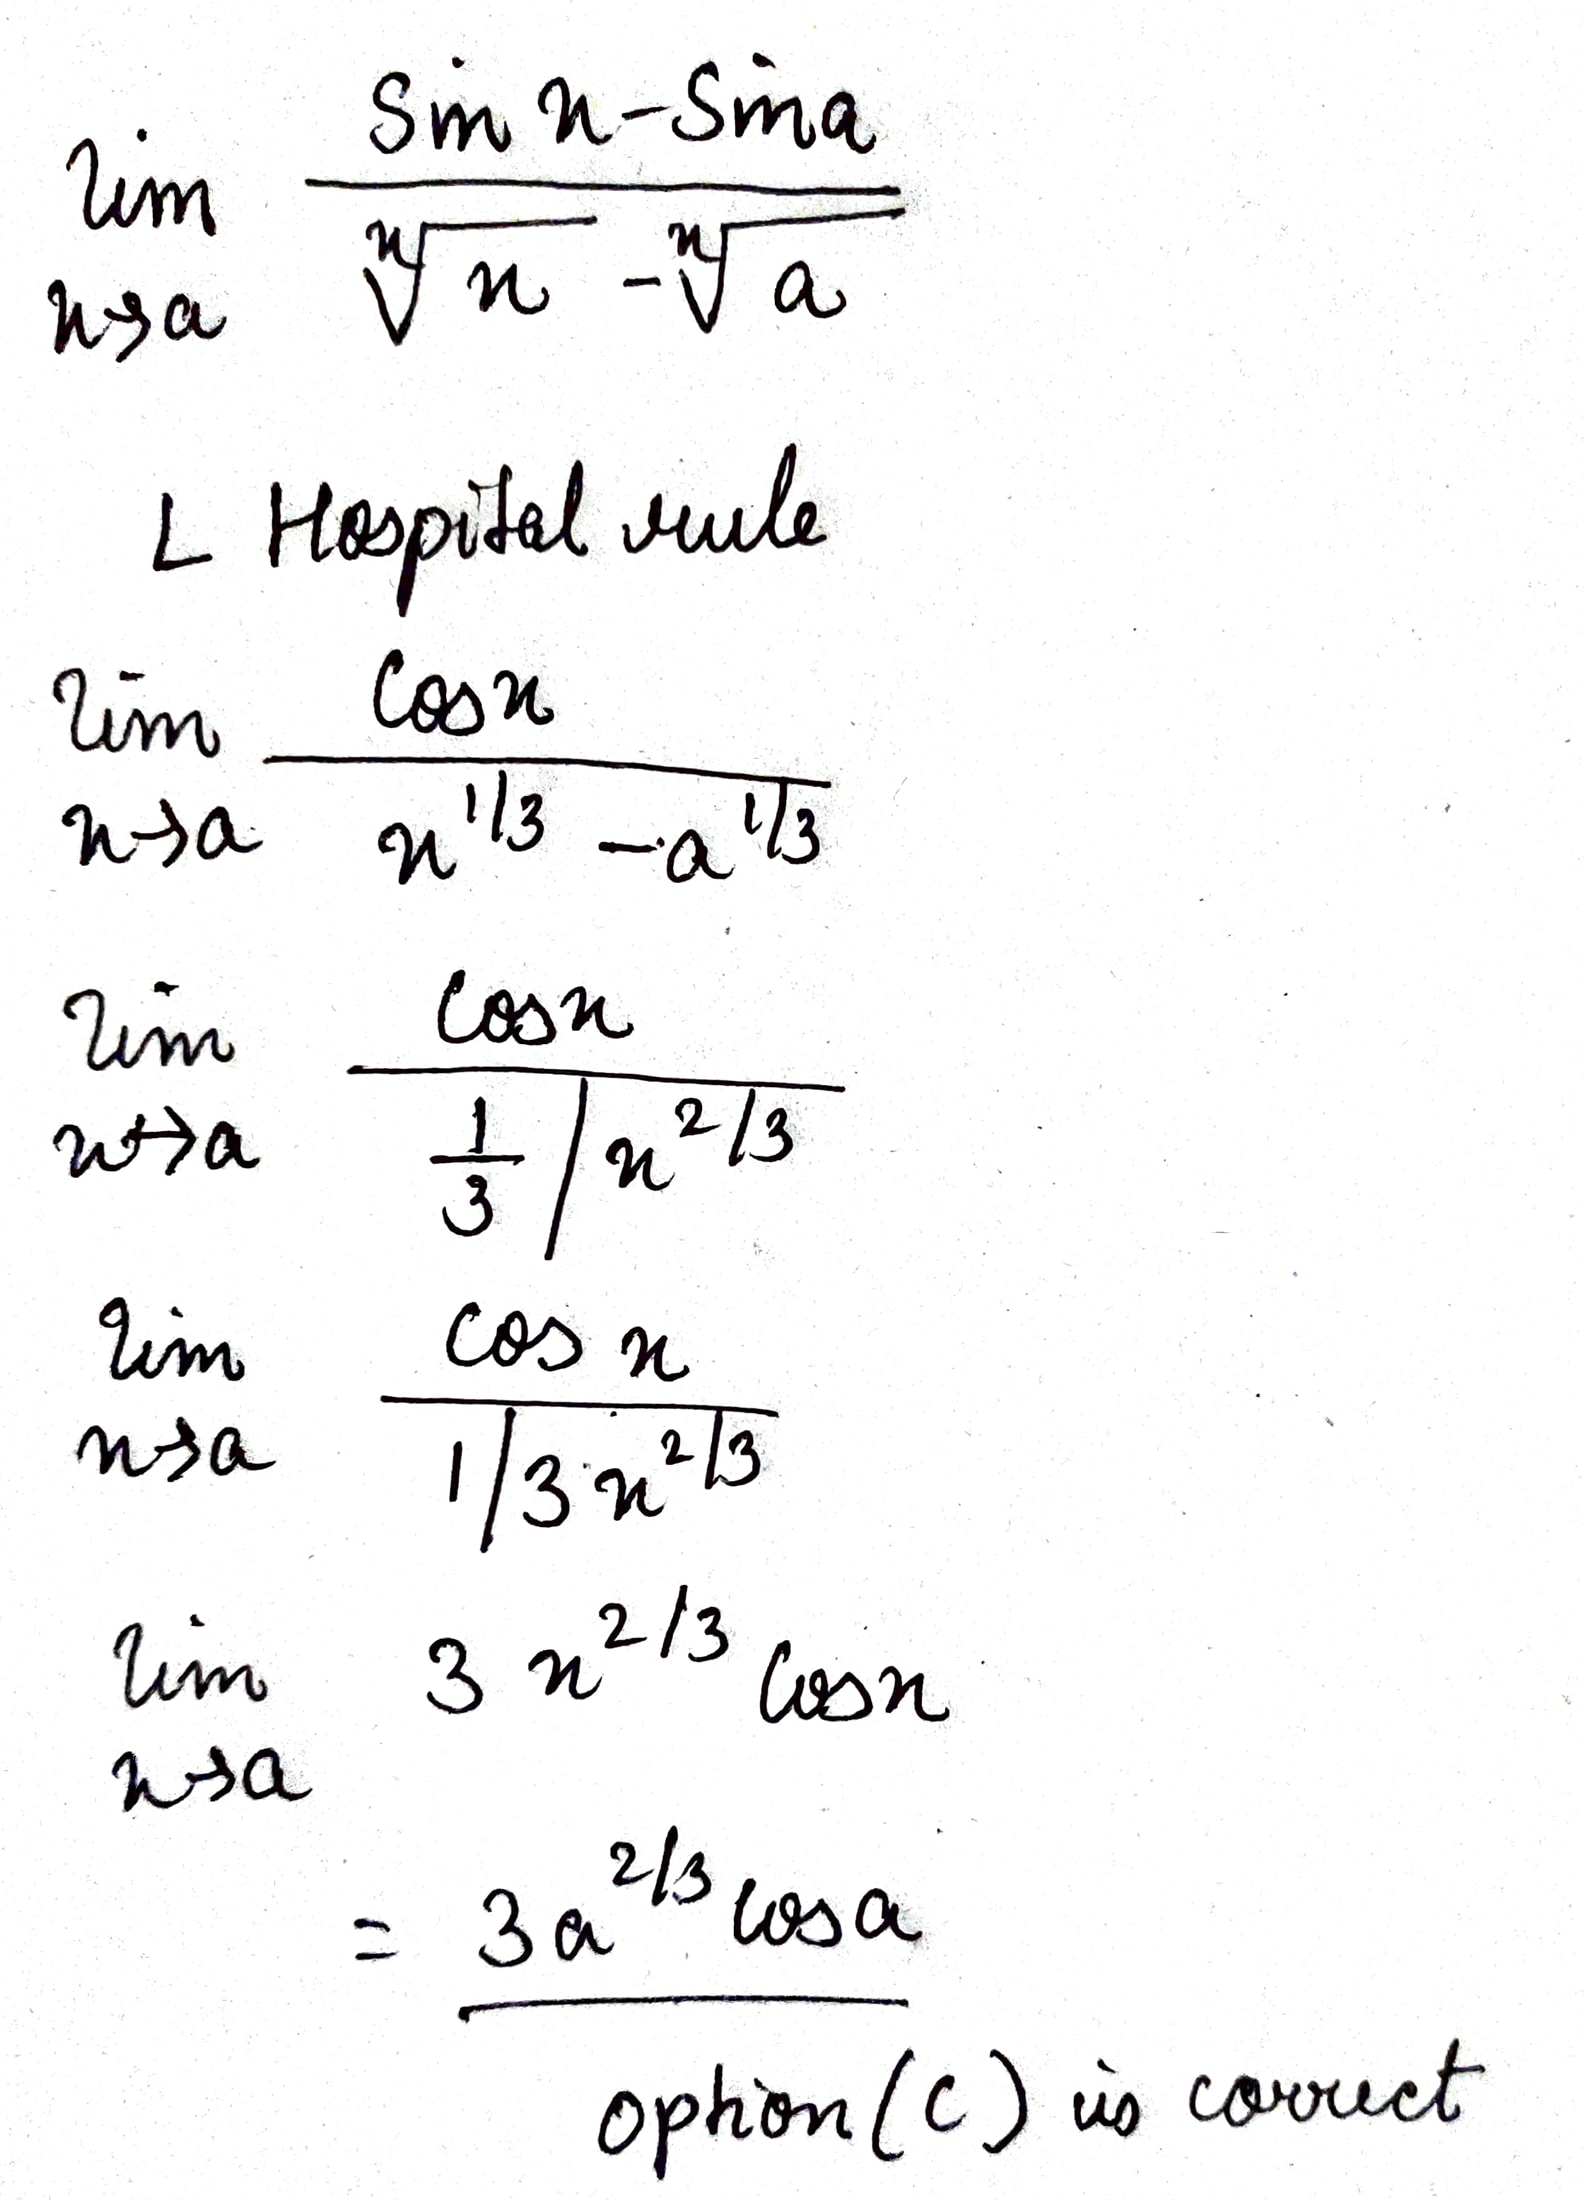 lim Sin x - Sin a
x→a ⁿ√x - ⁿ√a
L Hospital rule
lim Cos x
x→a x^1/3 - a^1/3
lim Cos x
x→a 1/3 / x^2/3
lim Cos x
x→a 1/3 x^2/3
lim 3 x^2/3 Cos x
x→a
= 3a^2/3 Cos a
option (C) is correct